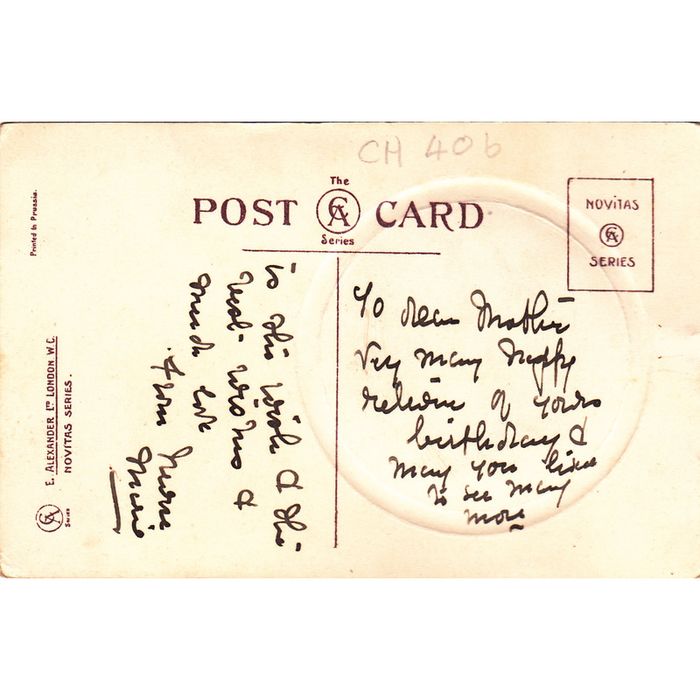 CH 406
The
POST CA CARD
Series
NOVITAS
CA
SERIES
Printed in Prussia.
E. ALEXANDER LTD LONDON W.C.
NOVITAS SERIES.
CA
Series
To dear Mother
Very many happy
return of yours
birthday &
many you live
to see many
more
is the wish & the
best wishes &
much love
from
Marie